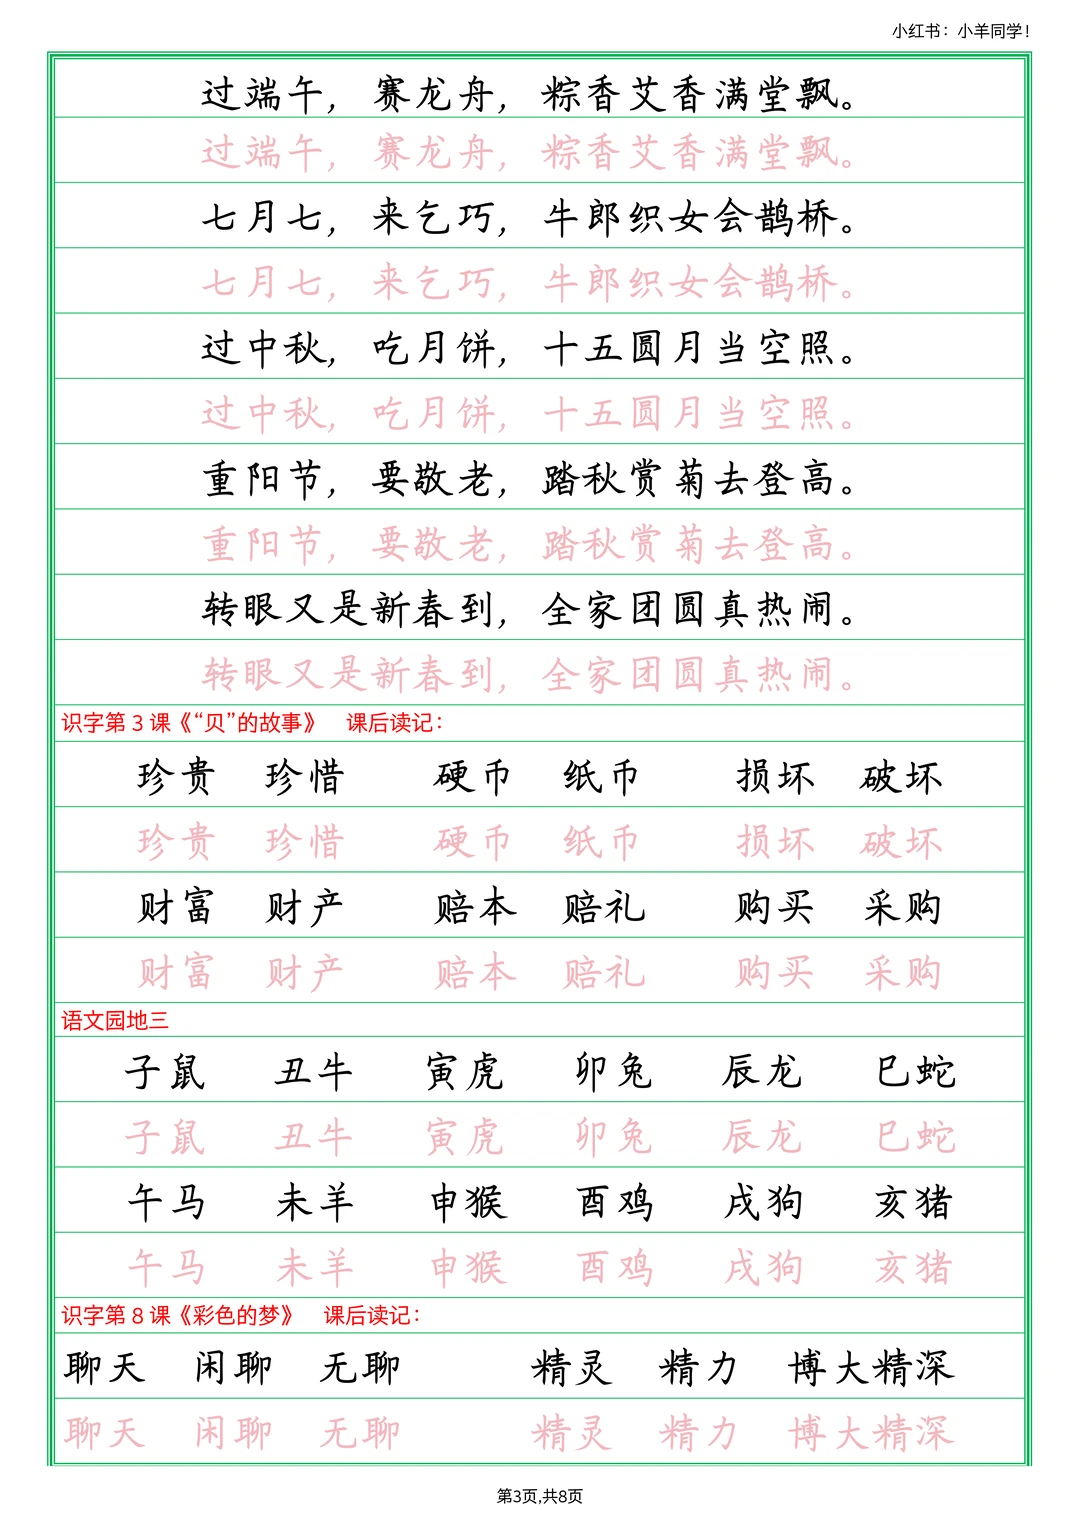 小红书：小羊同学！
过端午，赛龙舟，粽香艾香满堂飘。
过端午，赛龙舟，粽香艾香满堂飘。
七月七，来乞巧，牛郎织女会鹊桥。
七月七，来乞巧，牛郎织女会鹊桥。
过中秋，吃月饼，十五圆月当空照。
过中秋，吃月饼，十五圆月当空照。
重阳节，要敬老，踏秋赏菊去登高。
重阳节，要敬老，踏秋赏菊去登高。
转眼又是新春到，全家团圆真热闹。
转眼又是新春到，全家团圆真热闹。
识字第 3 课《“贝”的故事》 课后读记：
珍贵 珍惜 硬币 纸币 损坏 破坏
珍贵 珍惜 硬币 纸币 损坏 破坏
财富 财产 赔本 赔礼 购买 采购
财富 财产 赔本 赔礼 购买 采购
语文园地三
子鼠 丑牛 寅虎 卯兔 辰龙 巳蛇
子鼠 丑牛 寅虎 卯兔 辰龙 巳蛇
午马 未羊 申猴 酉鸡 戌狗 亥猪
午马 未羊 申猴 酉鸡 戌狗 亥猪
识字第 8 课《彩色的梦》 课后读记：
聊天 闲聊 无聊 精灵 精力 博大精深
聊天 闲聊 无聊 精灵 精力 博大精深
第3页,共8页